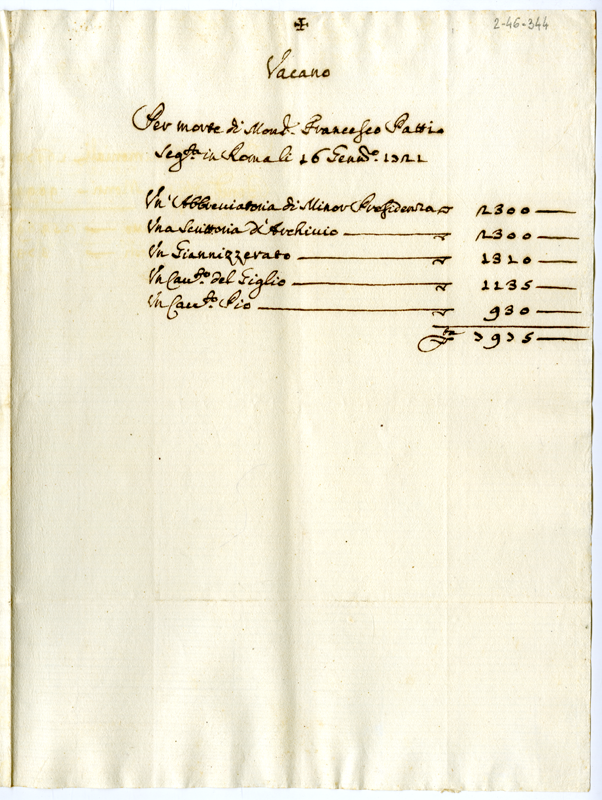 2-46-344
✠
Vacano
Per morte di Mons.r Francesco Pattia
Seg.ta in Roma li 16 Genn.o 1721
Un' Abbreviatoria di Minor Presidenza 2300
Una Scrittoria d'Archivio 2300
Un Giannizzerato 1310
Un Cau.to del Giglio 1135
Un Cau.to Pio 930
7975